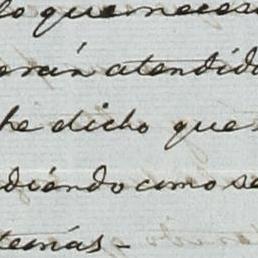 lo que neces
erán atendido
he dicho que
diéndo como se
temás -